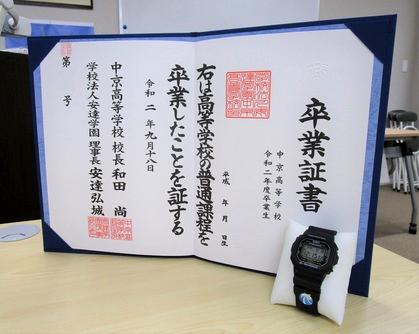 卒業証書
中京高等学校
令和二年度卒業生
平成　年　月　日生
右は高等学校の普通課程を
卒業したことを証する
令和二年九月十八日
中京高等学校 校長 和田 尚
学校法人安達学園 理事長 安達弘城
第　号